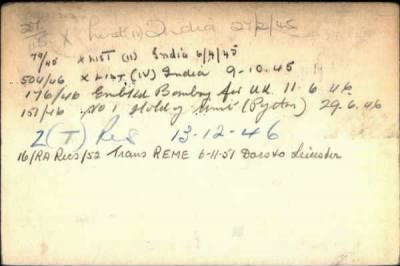 X List (II) India 27/2/45
79/45 X LIST (II) India 6/4/45
504/46 X LIST (IV) India 9-10.45
176/46 Embkd Bombay for UK 11.6.46
151/46 No 1 Holding Unit 29.6.46
2(T) Res 13-12-46
16/RA Rees/52 Trans REME 6-11-51 Dorsts Leicester